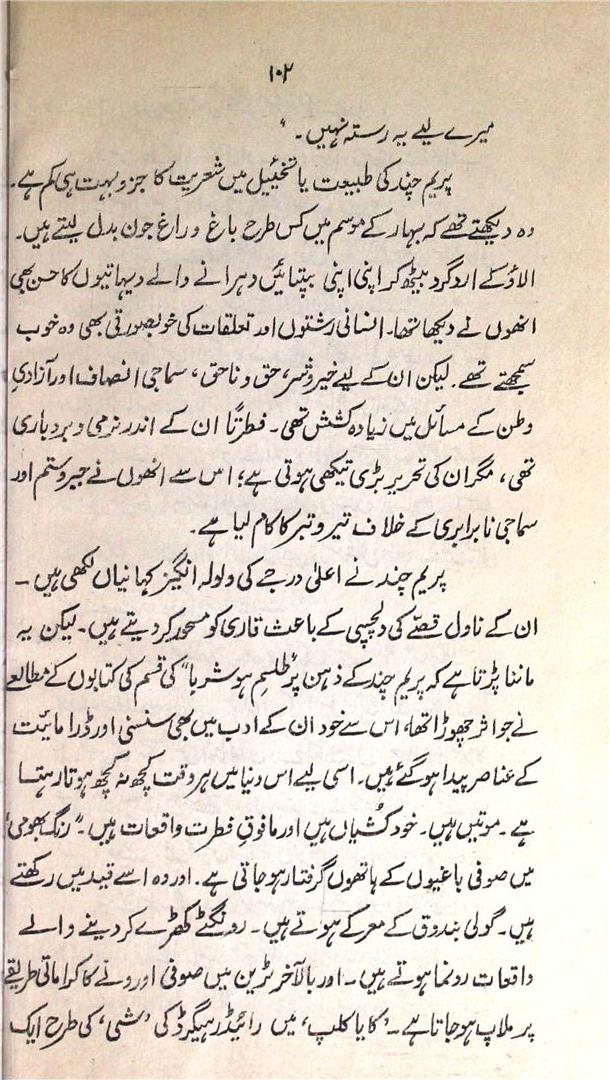 ۱۰۲
میرے لیے یہ رستہ نہیں۔"
پریم چند کی طبیعت یا تخئیل میں شعریت کا جزو بہت ہی کم ہے۔
وہ دیکھتے تھے کہ بہار کے موسم میں کس طرح باغ و راغ جون بدل لیتے ہیں۔
الاؤ کے اردگرد بیٹھ کر اپنی اپنی بپتائیں دہرانے والے دیہاتیوں کا حسن بھی
انھوں نے دیکھا تھا۔ انسانی رشتوں اور تعلقات کی خوبصورتی بھی وہ خوب
سمجھتے تھے۔ لیکن ان کے لیے خیر و شر، حق و ناحق، سماجی انصاف اور آزادیِ
وطن کے مسائل میں زیادہ کشش تھی۔ فطرتاً ان کے اندر نرمی و بردباری
تھی، مگر ان کی تحریر بڑی تیکھی ہوتی ہے؛ اس سے انھوں نے جبر و ستم اور
سماجی نابرابری کے خلاف تیر و تبر کا کام لیا ہے۔
پریم چند نے اعلیٰ درجے کی ولولہ انگیز کہانیاں لکھی ہیں۔
ان کے ناول قصّے کی دلچسپی کے باعث قاری کو مسحور کر دیتے ہیں۔ لیکن یہ
ماننا پڑتا ہے کہ پریم چند کے ذہن پر "طلسمِ ہوشربا" کی قسم کی کتابوں کے مطالعے
نے جو اثر چھوڑا تھا، اس سے خود ان کے ادب میں بھی سنسنی اور ڈرامائیت
کے عناصر پیدا ہو گئے ہیں۔ اسی لیے اس دنیا میں ہر وقت کچھ نہ کچھ ہوتا رہتا
ہے۔ موتیں ہیں۔ خود کُشیاں ہیں اور مافوقِ فطرت واقعات ہیں۔ "رنگ بھومی"
میں صوفی باغیوں کے ہاتھوں گرفتار ہو جاتی ہے۔ اور وہ اسے قید میں رکھتے
ہیں۔ گولی بندوق کے معرکے ہوتے ہیں۔ رونگٹے کھڑے کر دینے والے
واقعات رونما ہوتے ہیں۔ اور بالآخر ٹرین میں صوفی اور ونے کا کراماتی طریقے
پر ملاپ ہو جاتا ہے۔ 'کایا کلپ' میں رائیڈر ہیگرڈ کی 'شی' کی طرح ایک